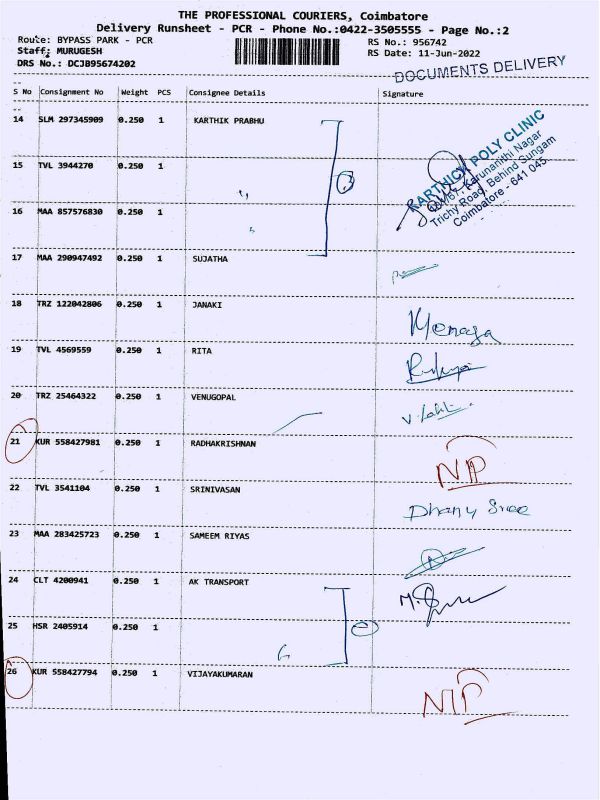 THE PROFESSIONAL COURIERS, Coimbatore
Delivery Runsheet - PCR - Phone No.:0422-3505555 - Page No.:2
Route: BYPASS PARK - PCR
RS No.: 956742
Staff: MURUGESH
RS Date: 11-Jun-2022
DRS No.: DCJB95674202
DOCUMENTS DELIVERY
S No Consignment No Weight PCS Consignee Details Signature
14 SLM 297345909 0.250 1 KARTHIK PRABHU
KARTHICK POLY CLINIC
Karunanithi Nagar
Trichy Road, Behind Sungam
Coimbatore - 641 045.
15 TVL 3944270 0.250 1
16 MAA 857576830 0.250 1
17 MAA 290947492 0.250 1 SUJATHA
18 TRZ 122042806 0.250 1 JANAKI
Menaga
19 TVL 4569559 0.250 1 RITA
20 TRZ 25464322 0.250 1 VENUGOPAL
21 KUR 558427981 0.250 1 RADHAKRISHNAN
NP
22 TVL 3541104 0.250 1 SRINIVASAN
Dhany Sree
23 MAA 283425723 0.250 1 SAMEEM RIYAS
24 CLT 4200941 0.250 1 AK TRANSPORT
25 HSR 2405914 0.250 1
26 KUR 558427794 0.250 1 VIJAYAKUMARAN
NP